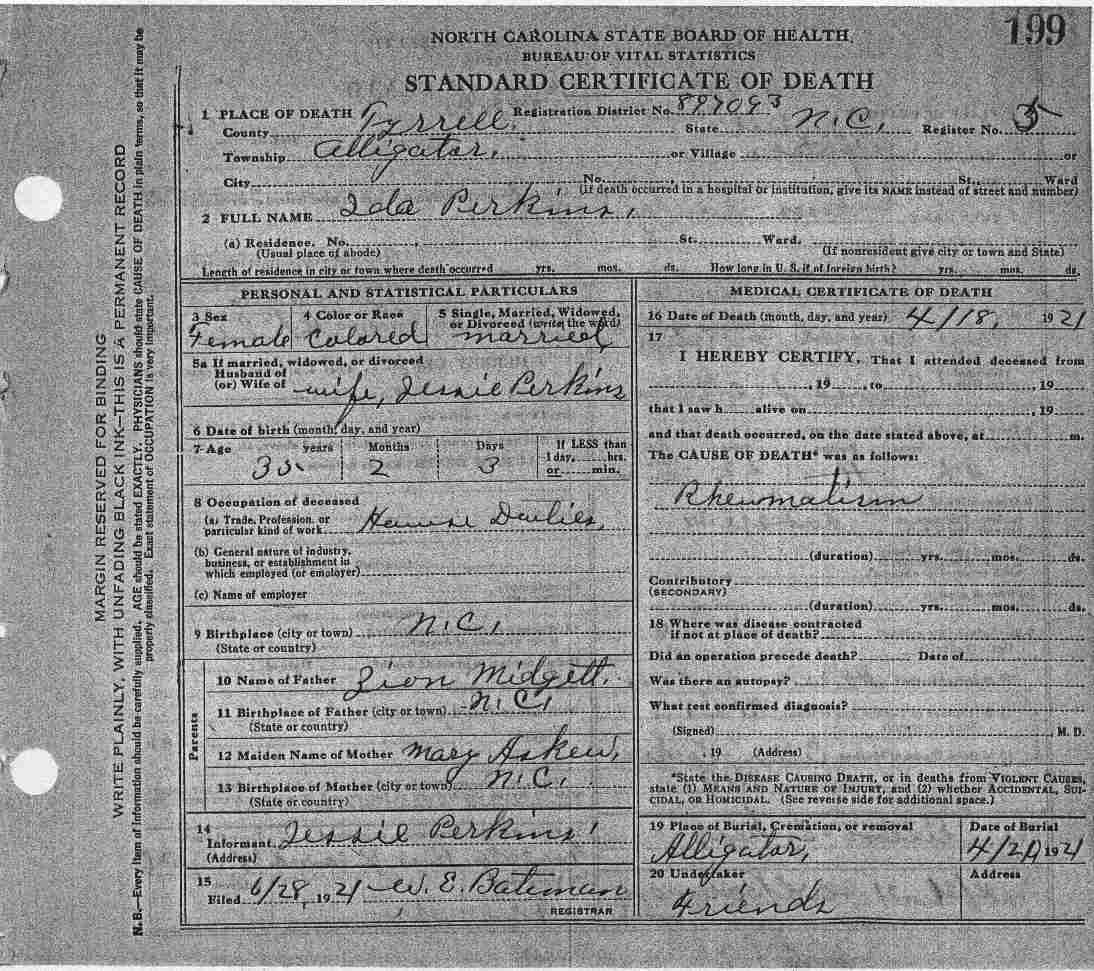 199
NORTH CAROLINA STATE BOARD OF HEALTH
BUREAU OF VITAL STATISTICS
STANDARD CERTIFICATE OF DEATH
1 PLACE OF DEATH Registration District No. 897093
County Tyrrell. State N.C. Register No. 5
Township Alligator. or Village or
City No. St. Ward
(If death occurred in a hospital or institution, give its NAME instead of street and number)
2 FULL NAME Ida Perkins.
(a) Residence. No. St. Ward.
(Usual place of abode) (If nonresident give city or town and State)
Length of residence in city or town where death occurred yrs. mos. ds. How long in U. S. if of foreign birth? yrs. mos. ds.
PERSONAL AND STATISTICAL PARTICULARS
3 Sex 4 Color or Race 5 Single, Married, Widowed,
or Divorced (write the word)
Female Colored married
5a If married, widowed, or divorced
Husband of
(or) Wife of wife, Jessie Perkins
6 Date of birth (month, day, and year)
7 Age years Months Days If LESS than
1 day, hrs.
or min.
35 2 3
8 Occupation of deceased
(a) Trade, Profession, or
particular kind of work House Duties
(b) General nature of industry,
business, or establishment in
which employed (or employer)
(c) Name of employer
9 Birthplace (city or town) N.C.
(State or country)
Parents
10 Name of Father Zion Midgett.
11 Birthplace of Father (city or town) N.C.
(State or country)
12 Maiden Name of Mother Mary Askew,
13 Birthplace of Mother (city or town) N.C.
(State or country)
14
Informant Jessie Perkins
(Address)
15
Filed 6/28, 1921 W. E. Bateman
REGISTRAR
MEDICAL CERTIFICATE OF DEATH
16 Date of Death (month, day, and year) 4/18, 1921
17
I HEREBY CERTIFY, That I attended deceased from
, 19 , to , 19
that I saw h alive on , 19
and that death occurred, on the date stated above, at m.
The CAUSE OF DEATH* was as follows:
Rheumatism
(duration) yrs. mos. ds.
Contributory
(SECONDARY)
(duration) yrs. mos. ds.
18 Where was disease contracted
if not at place of death?
Did an operation precede death? Date of
Was there an autopsy?
What test confirmed diagnosis?
(Signed) , M. D.
, 19 (Address)
*State the DISEASE CAUSING DEATH, or in deaths from VIOLENT CAUSES,
state (1) MEANS AND NATURE OF INJURY, and (2) whether ACCIDENTAL, SUI-
CIDAL, OR HOMICIDAL. (See reverse side for additional space.)
19 Place of Burial, Cremation, or removal Date of Burial
Alligator, 1921
20 Undertaker Address
Friends
MARGIN RESERVED FOR BINDING
WRITE PLAINLY, WITH UNFADING BLACK INK—THIS IS A PERMANENT RECORD
N. B.—Every item of information should be carefully supplied. AGE should be stated EXACTLY. PHYSICIANS should state CAUSE OF DEATH in plain terms, so that it may be
properly classified. Exact statement of OCCUPATION is very important.